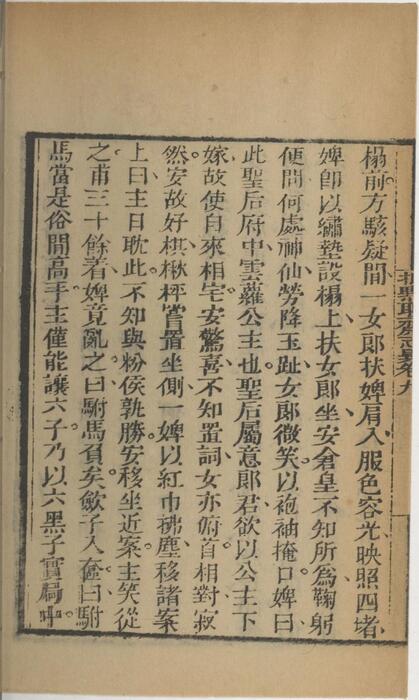 批點聊齋志異卷九
榻前方駭疑間一女郎扶婢肩入服色容光映照四堵
婢卽以繡墊設榻上扶女郎坐安倉皇不知所爲鞠躬
便問何處神仙勞降玉趾女郎微笑以袍袖掩口婢曰
此聖后府中雲蘿公主也聖后屬意郎君欲以公主下
嫁故使自來相宅安驚喜不知置詞女亦俯首相對寂
然安故好棋楸枰嘗置坐側一婢以紅巾拂塵移諸案
上曰主日耽此不知與粉侯孰勝安移坐近案主笑從
之甫三十餘着婢竟亂之曰駙馬負矣斂子入盒曰駙
馬當是俗間高手主僅能讓六子乃以六黑子實局中